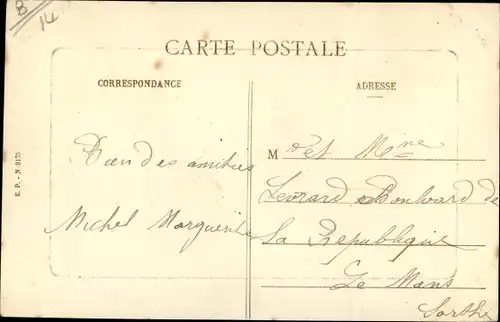 B
14
CARTE POSTALE
CORRESPONDANCE
Bien des amitiés
Michel Marguerite
ADRESSE
M et Mme
Levrard Boulvard de
La République
Le Mans
Sarthe
E. P. - N. 3175